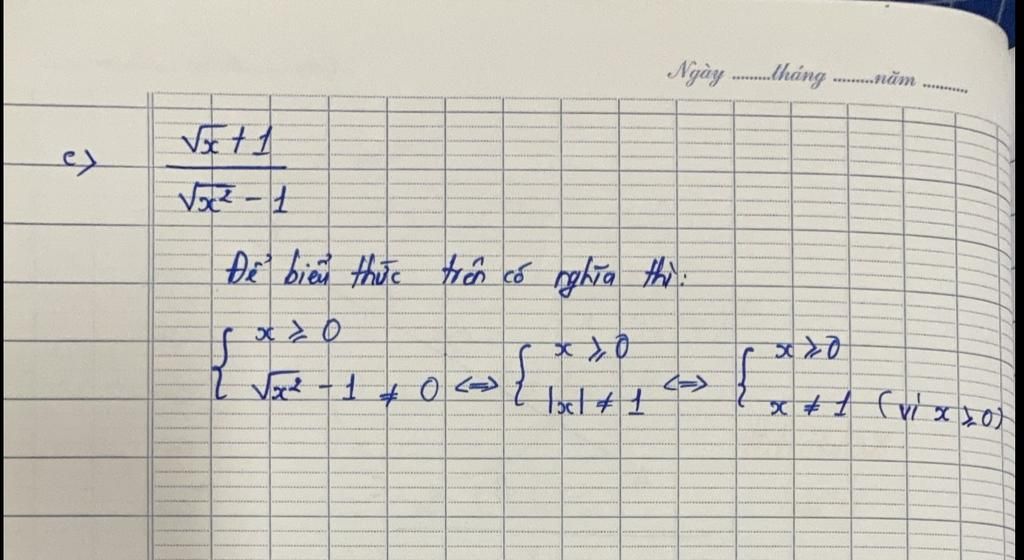 Ngày .........tháng .........năm ..........
c) (√x + 1)/(√x² - 1)
Để biểu thức trên có nghĩa thì:
{ x ≥ 0 ; √x² - 1 ≠ 0 <=> { x ≥ 0 ; |x| ≠ 1 <=> { x ≥ 0 ; x ≠ 1 (vì x ≥ 0)